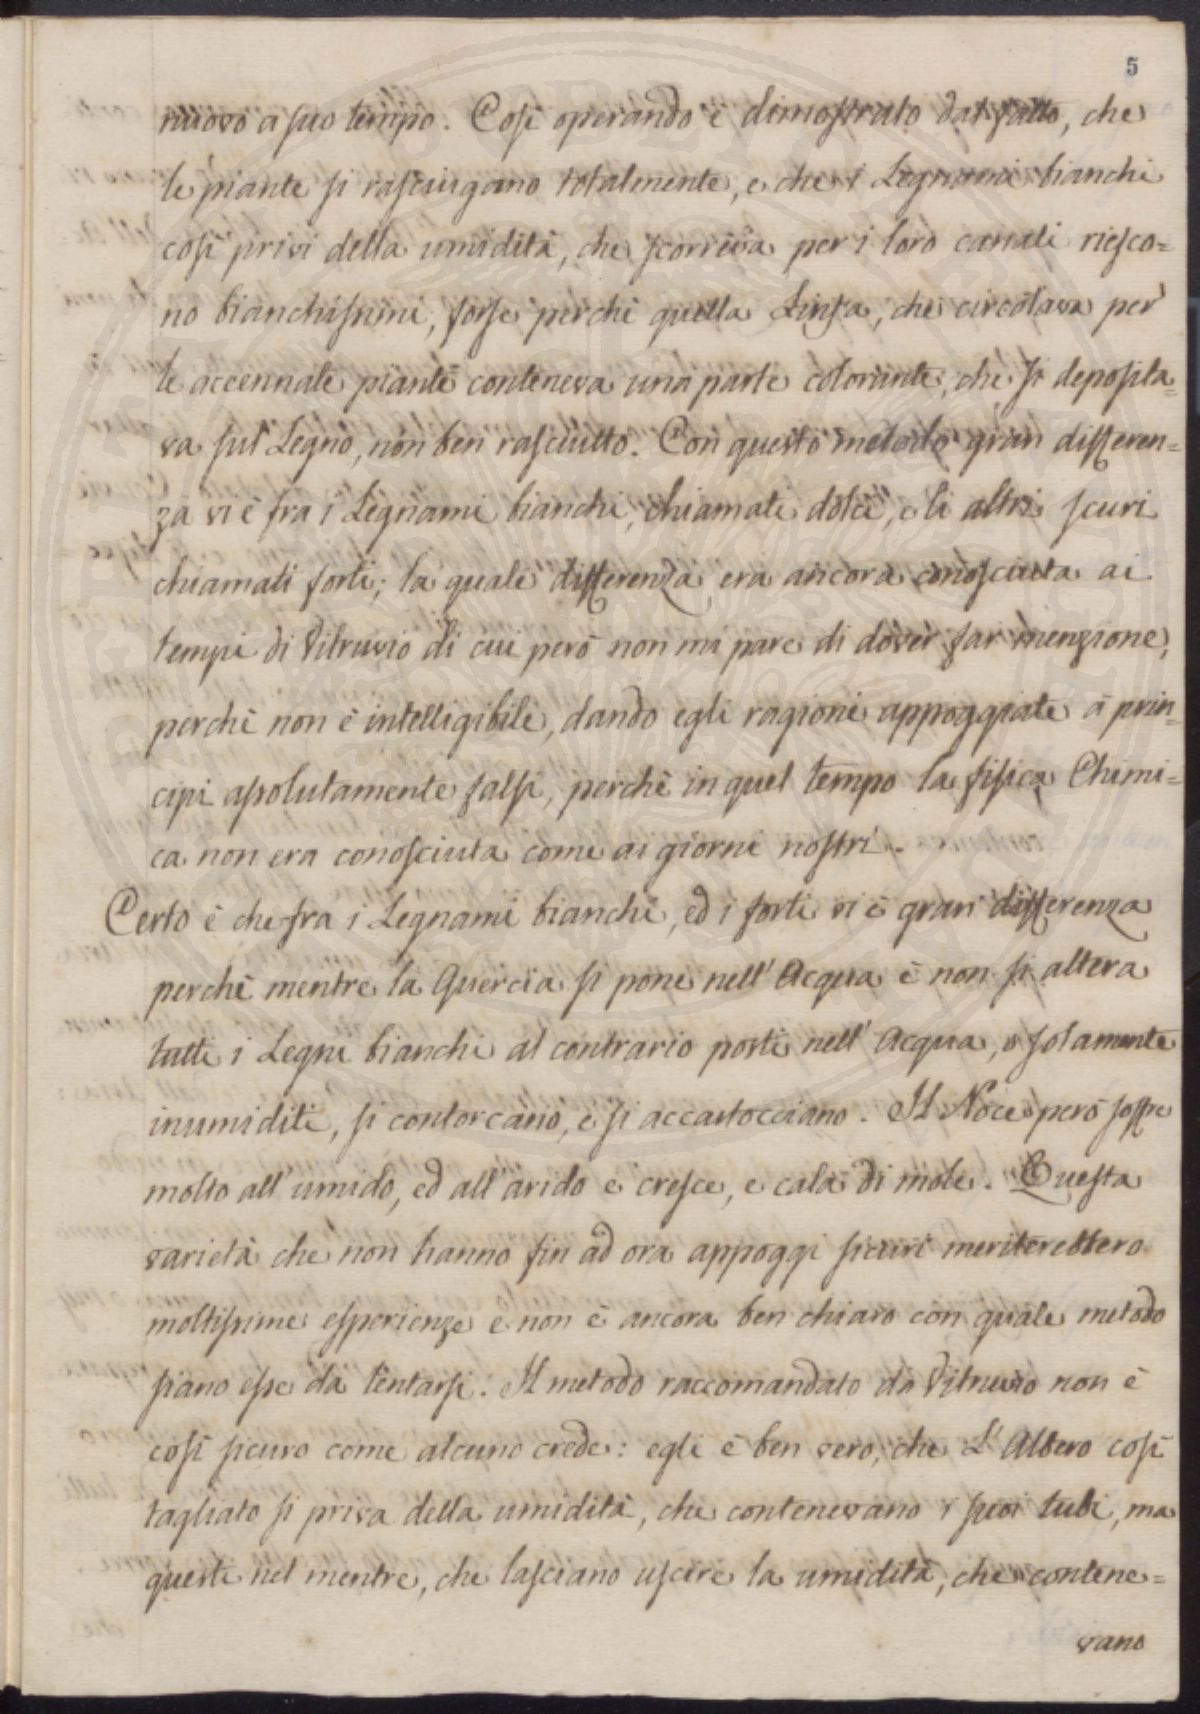 5
nuovo a suo tempo. Così operando è dimostrato dal fatto, che
le piante si rasciugano totalmente, e che i Legnami bianchi
così privi della umidità, che scorreva per i loro canali riesco=
no bianchissimi, forse perchè quella Linfa, che circolava per
le accennate piante conteneva una parte colorante, che si deposita=
va sul Legno, non ben rasciutto. Con questo metodo gran differen=
za vi è fra i Legnami bianchi, chiamati dolci, e li altri scuri
chiamati forti; la quale differenza era ancora conosciuta ai
tempi di Vitruvio di cui però non mi pare di dover far menzione,
perchè non è intelligibile, dando egli ragioni appoggiate à prin=
cipi assolutamente falsi, perchè in quel tempo la fisica Chimi=
ca non era conosciuta come ai giorni nostri.
Certo è che fra i Legnami bianchi, ed i forti vi è gran differenza
perchè mentre la Quercia si pone nell' Acqua è non si altera
tutti i Legni bianchi al contrario posti nell' Acqua, o solamente
inumiditi, si contorcano, e si accartocciano. Il Noce però soffre
molto all' umido, ed all' arido e cresce, e cala di mole. Questa
varietà che non hanno fin ad ora appoggi sicuri meriterebbero
moltissime esperienze e non è ancora ben chiaro con quale metodo
siano esse da tentarsi. Il metodo raccomandato da Vitruvio non è
così sicuro come alcuno crede: egli è ben vero, che L' Albero così
tagliato si priva della umidità, che contenevano i suoi tubi, ma
questi nel mentre, che lasciano uscire la umidità, che contene=
vano